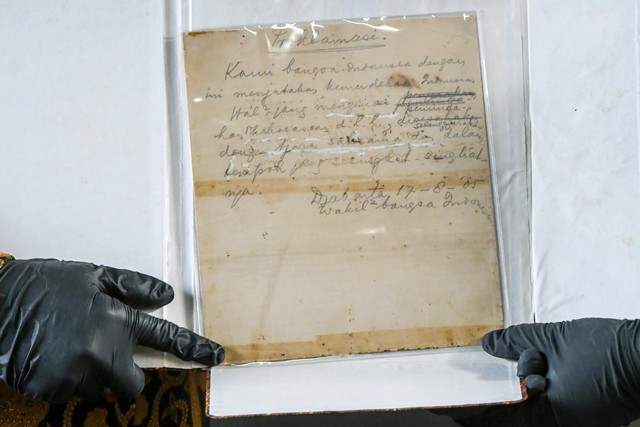 Proklamasi.
Kami bangsa Indonesia dengan
ini menjatakan kemerdekaan Indonesia.
Hal2 jang mengenai
kekoeasaan d.l.l.,
dengan tjara seksama dan dalam
tempoh jang sesingkat-singkat
nja.
Djakarta, 17-8-'05
Wakil2 bangsa Indon